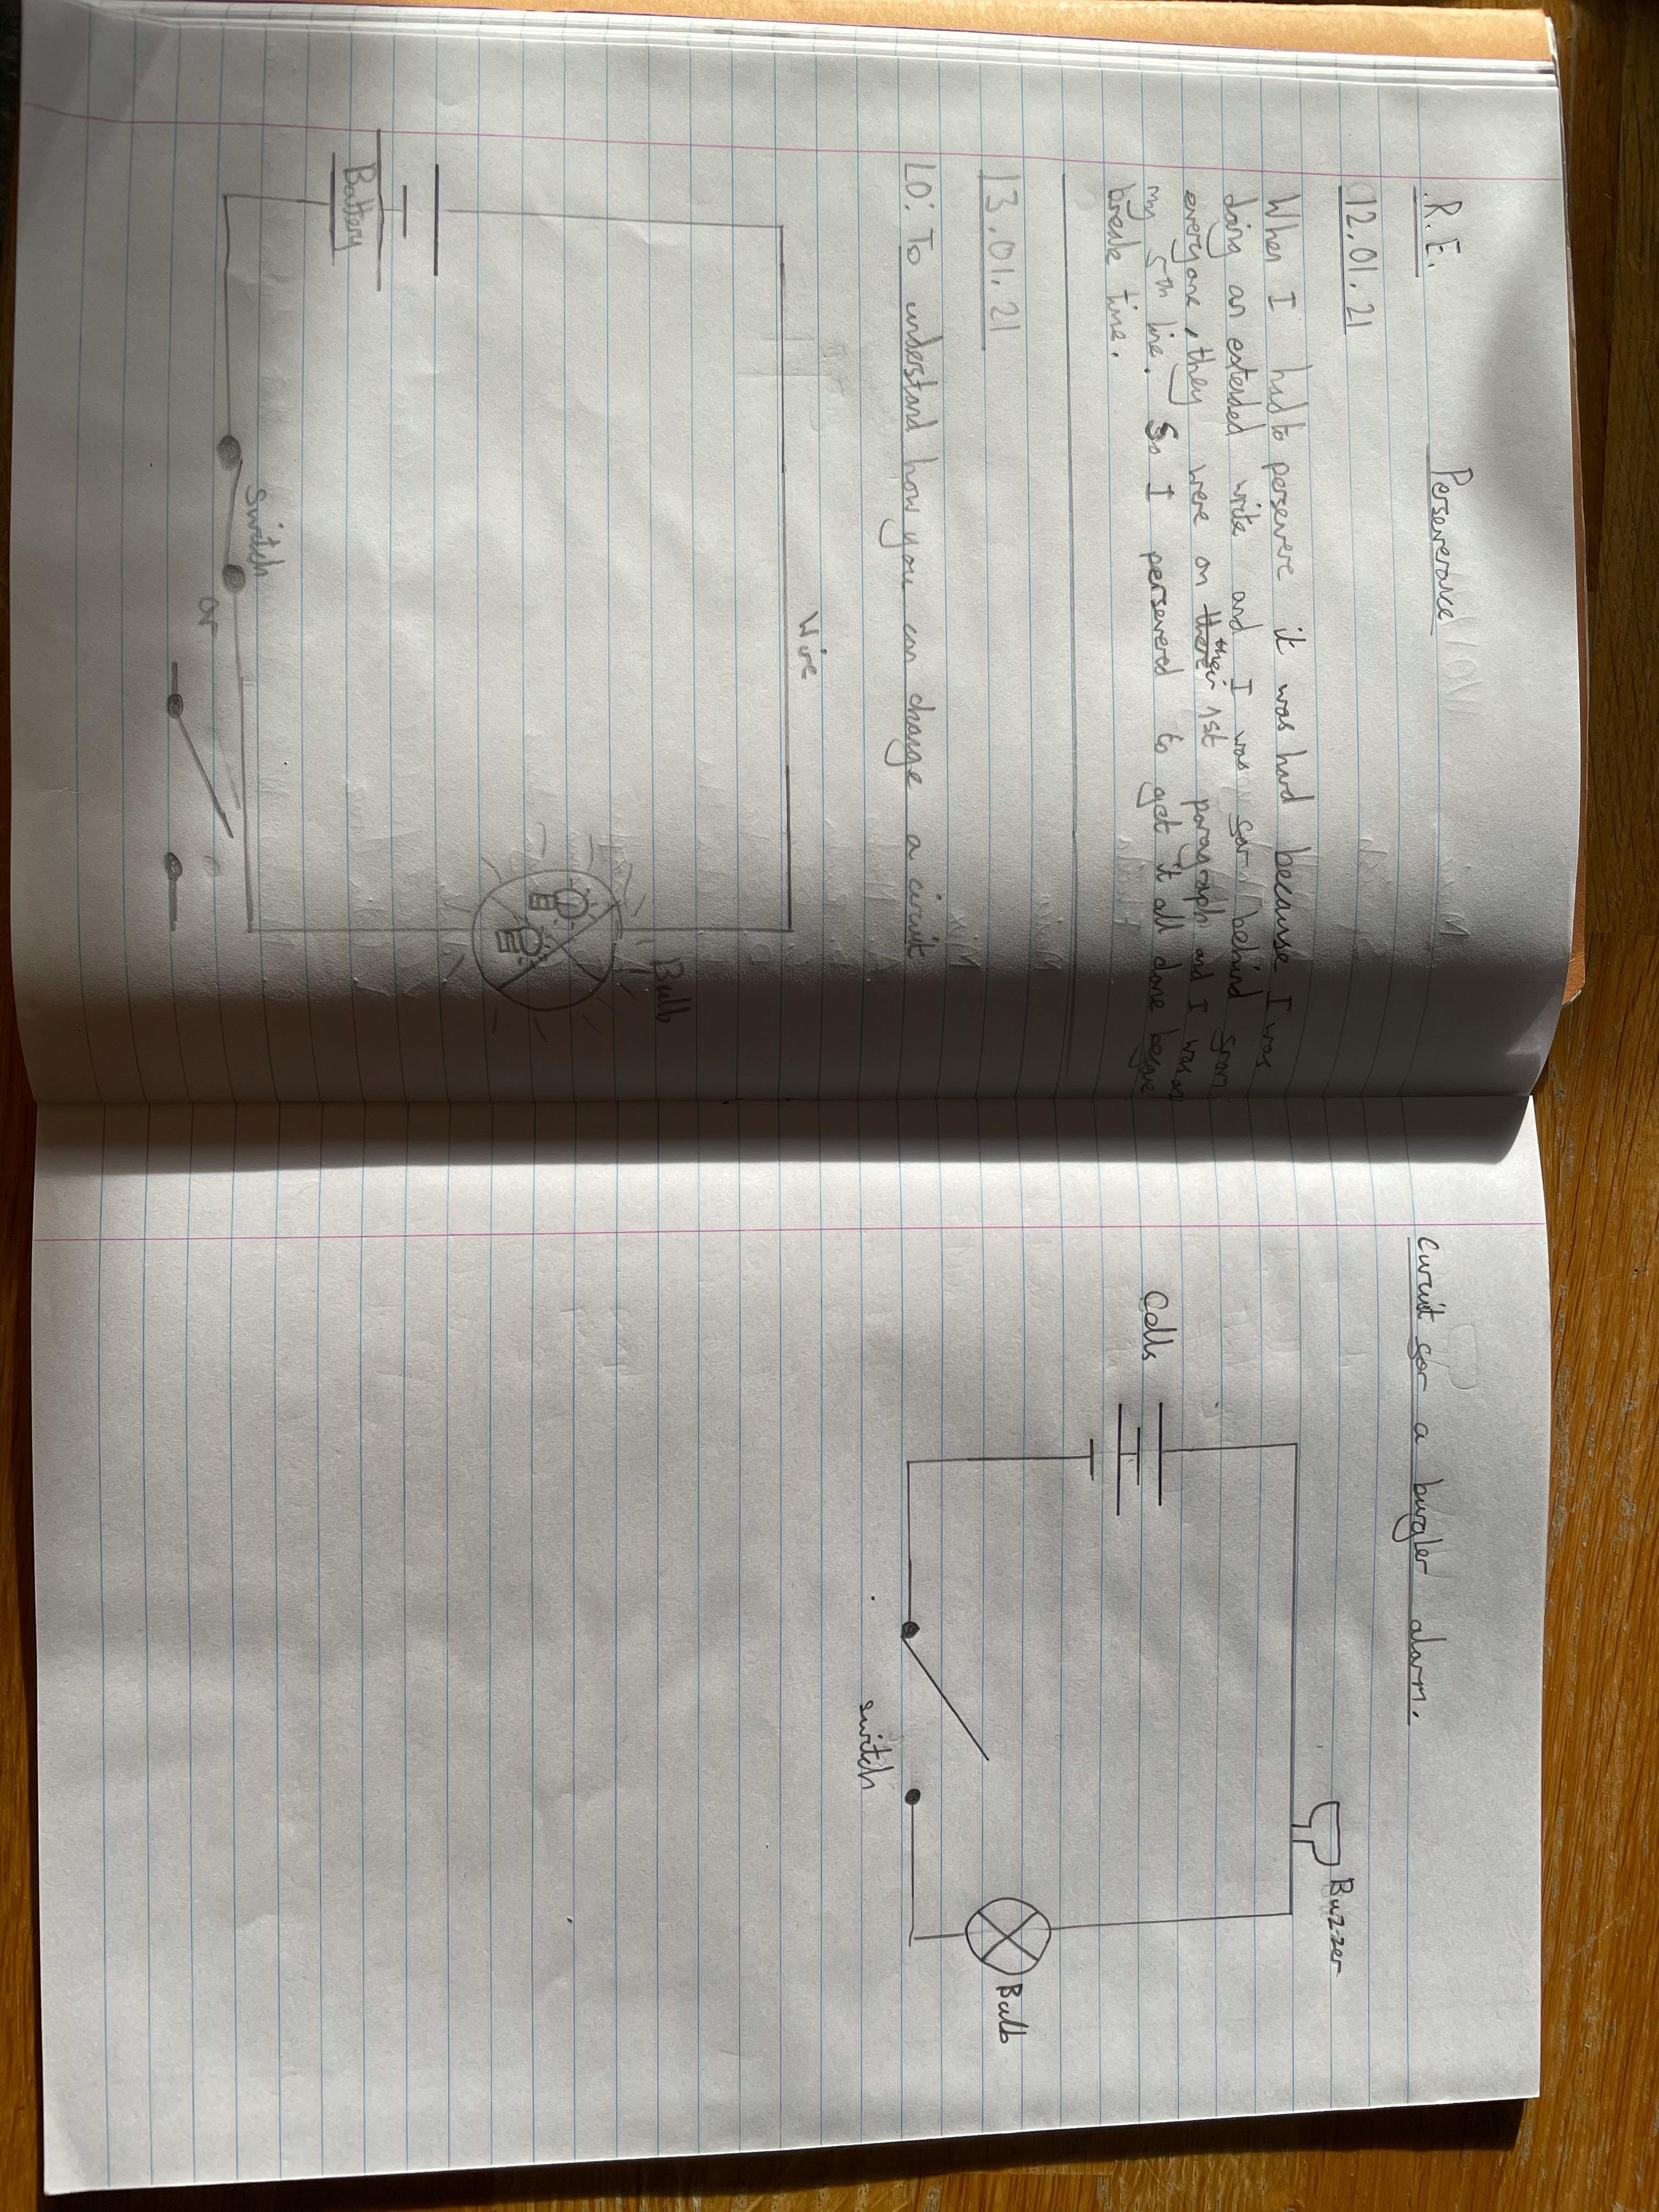 R.E.
Perseverance
12.01.21
When I had to persevere it was hard because I was
doing an extended write and I was far behind from
everyone, they were on there their 1st paragraph and I was on
my 5th line. So I persevered to get it all done before
break time.
13.01.21
LO: To understand how you can change a circuit
Wire
Bulb
Battery
Switch
or
Circuit for a burgler alarm.
Buzzer
Cells
Bulb
switch